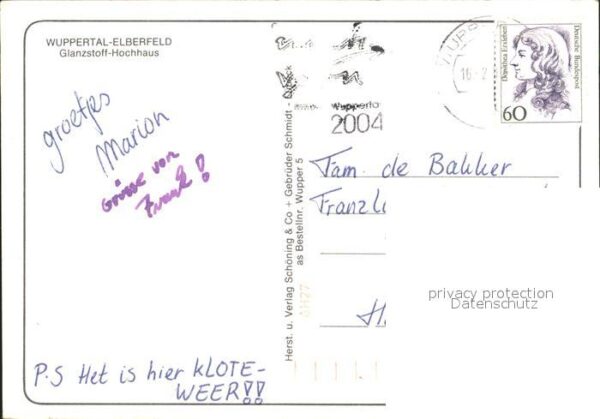 WUPPERTAL-ELBERFELD
Glanzstoff-Hochhaus
groetjes
Marion
Grüsse von
Frank!
P.S Het is hier KLOTE-
WEER!!
Herst. u. Verlag Schöning & Co + Gebrüder Schmidt -
as Bestellnr. Wupper 5
Wupperta
2004
WUPP
Dorothea Erxleben
Deutsche Bundespost
60
Fam. de Bakker
Franzl
H
privacy protection
Datenschutz